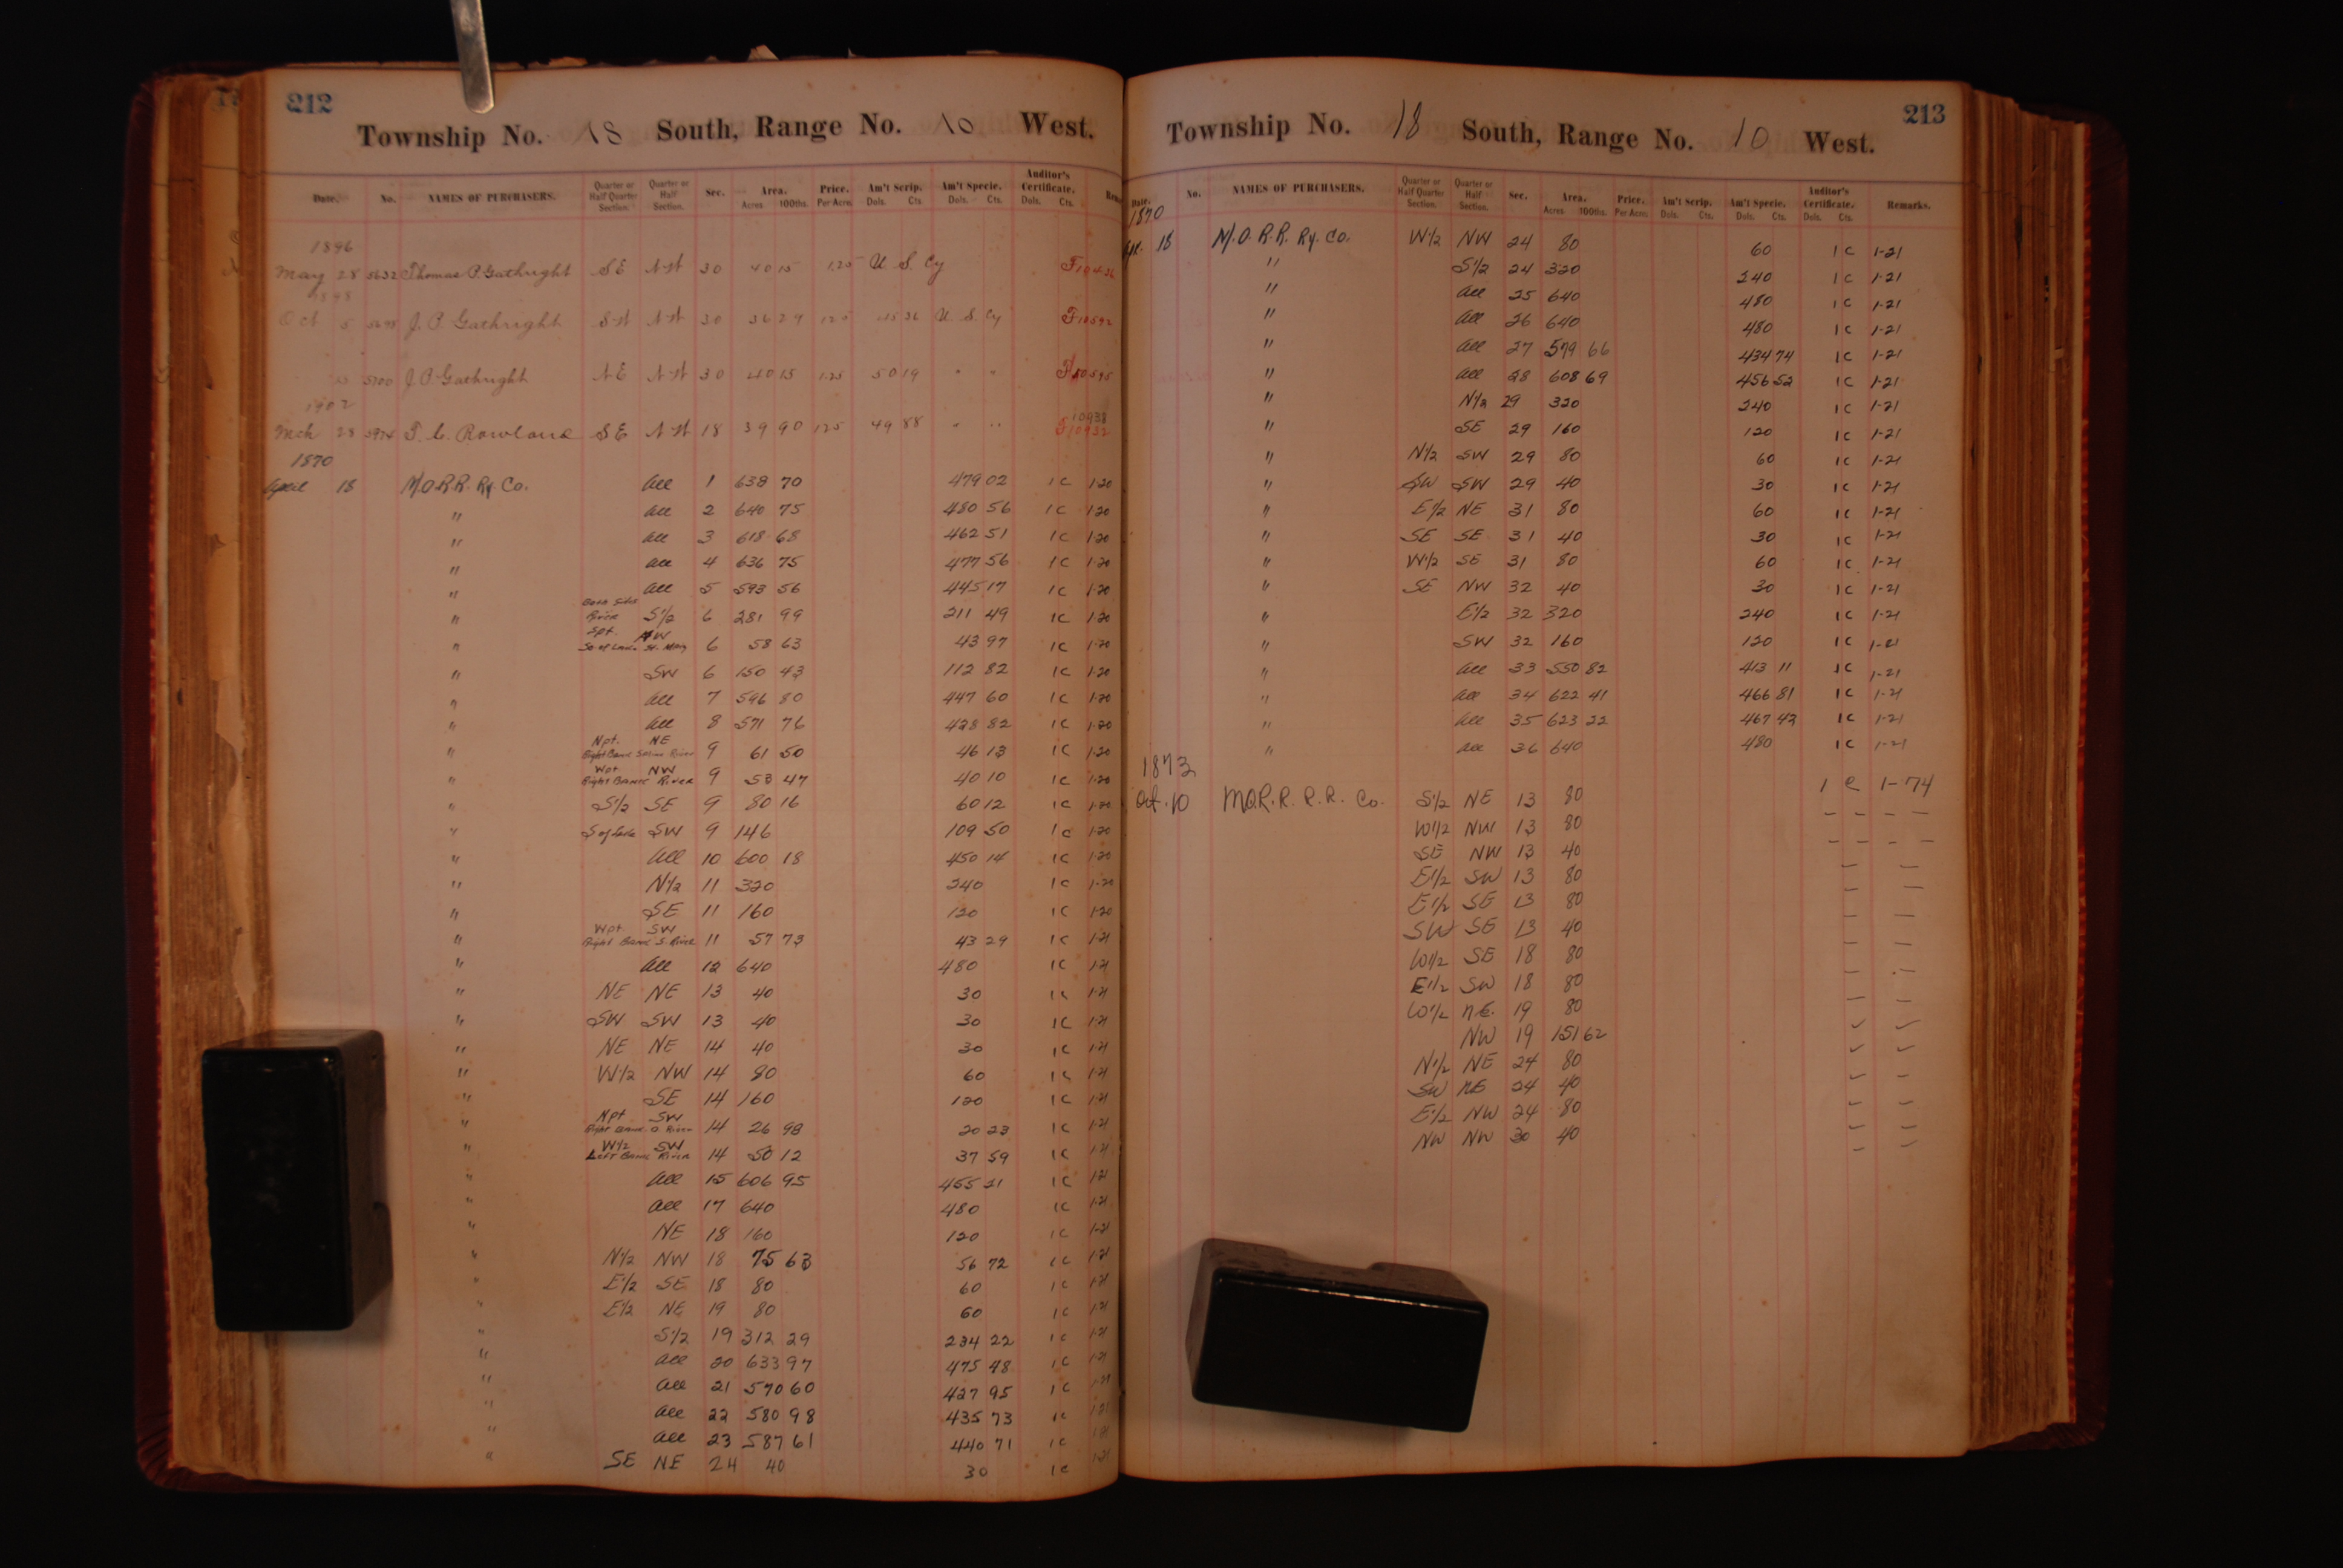 212
Township No. 18 South, Range No. 10 West.
Date. No. NAMES OF PURCHASERS. Quarter or Half Quarter Section. Quarter or Half Section. Sec. Area. Acres 100ths. Price. Per Acre. Am't Scrip. Dols. Cts Am't Specie. Dols. Cts. Auditor's Certificate. Dols. Cts.
1896
May 28 5632 Thomas P. Gathright SE NW 30 40 15 1.25 U. S. Cy
1898
Oct 5 J. P. Gathright SW NW 30 36 29 125 45 36 U. S. Cy
5700 J. P. Gathright NE NW 30 40 15 1.25 50 19 " "
1902
Mch 28 5974 T. C. Rowland SE NW 18 39 90 125 49 88 " " 10938
1870
April 18 M.O.R.R. Ry. Co. All 1 638 70 479 02 1 C 1-20
" All 2 640 75 480 56 1 C 1-20
" All 3 618 68 462 51 1 C 1-20
" All 4 636 75 477 56 1 C 1-20
" All 5 593 56 445 17 1 C 1-20
" Both Sides River S1/2 6 281 99 211 49 1 C 1-20
" Spt. NW So of Lake St. Mary 6 58 63 43 97 1 C 1-20
" SW 6 150 43 112 82 1 C 1-20
" All 7 596 80 447 60 1 C 1-20
" All 8 571 76 428 82 1 C 1-20
" Npt. NE Right Bank Saline River 9 61 50 46 13 1 C 1-20
" Wpt NW Right Bank River 9 53 47 40 10 1 C 1-20
" S1/2 SE 9 80 16 60 12 1 C 1-20
" S of Lake SW 9 146 109 50 1 C 1-20
" All 10 600 18 450 14 1 C 1-20
" N1/2 11 320 240 1 C 1-20
" SE 11 160 120 1 C 1-20
" Wpt SW Right Bank S. River 11 57 73 43 29 1 C 1-21
" All 12 640 480 1 C 1-21
" NE NE 13 40 30 1 C 1-21
" SW SW 13 40 30 1 C 1-21
" NE NE 14 40 30 1 C 1-21
" W1/2 NW 14 80 60 1 C 1-21
" SE 14 160 120 1 C 1-21
" Npt SW Right Bank River 14 26 98 20 23 1 C 1-21
" W1/2 SW Left Bank River 14 50 12 37 59 1 C 1-21
" All 15 606 95 455 21 1 C 1-21
" All 17 640 480 1 C 1-21
" NE 18 160 120 1 C 1-21
" N1/2 NW 18 75 63 56 72 1 C 1-21
" E1/2 SE 18 80 60 1 C 1-21
" E1/2 NE 19 80 60 1 C 1-21
" S1/2 19 312 29 234 22 1 C 1-21
" All 20 633 97 475 48 1 C 1-21
" All 21 570 60 427 95 1 C 1-21
" All 22 580 98 435 73 1 C 1-21
" All 23 587 61 440 71 1 C 1-21
" SE NE 24 40 30 1 C 1-21
213
Township No. 18 South, Range No. 10 West.
Date. No. NAMES OF PURCHASERS. Quarter or Half Quarter Section. Quarter or Half Section. Sec. Area. Acres 100ths. Price. Per Acre Am't Scrip. Dols. Cts. Am't Specie. Dols. Cts. Auditor's Certificate. Dols. Cts. Remarks.
1870
Apr. 18 M.O.R.R. Ry. Co. W1/2 NW 24 80 60 1 C 1-21
" S1/2 24 320 240 1 C 1-21
" All 25 640 480 1 C 1-21
" All 26 640 480 1 C 1-21
" All 27 579 66 434 74 1 C 1-21
" All 28 608 69 456 52 1 C 1-21
" N1/2 29 320 240 1 C 1-21
" SE 29 160 120 1 C 1-21
" N1/2 SW 29 80 60 1 C 1-21
" SW SW 29 40 30 1 C 1-21
" E1/2 NE 31 80 60 1 C 1-21
" SE SE 31 40 30 1 C 1-21
" W1/2 SE 31 80 60 1 C 1-21
" SE NW 32 40 30 1 C 1-21
" E1/2 32 320 240 1 C 1-21
" SW 32 160 120 1 C 1-21
" All 33 550 82 413 11 1 C 1-21
" All 34 622 41 466 81 1 C 1-21
" All 35 623 22 467 42 1 C 1-21
" All 36 640 480 1 C 1-21
1873
Oct. 10 M.O.R.R. R.R. Co. S1/2 NE 13 80 1 C 1-74
W1/2 NW 13 80 - - - -
SE NW 13 40 - - - -
E1/2 SW 13 80 - -
E1/2 SE 13 80 - -
SW SE 13 40 - -
W1/2 SE 18 80 - -
E1/2 SW 18 80 - -
W1/2 NE 19 80 - -
NW 19 151 62 - -
N1/2 NE 24 80 - -
SW NE 24 40 - -
E1/2 NW 24 80 - -
NW NW 30 40 - -